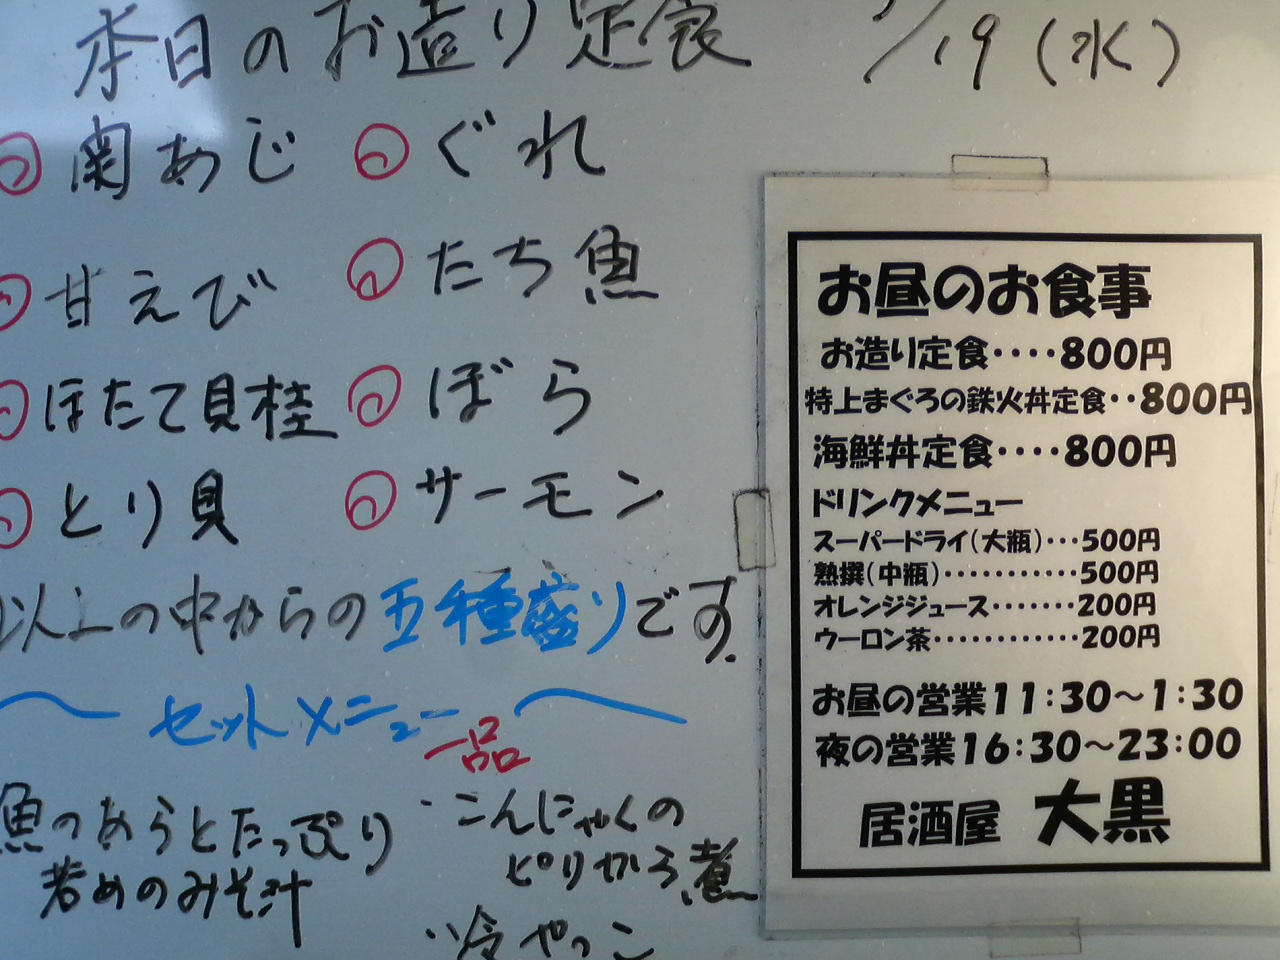 本日のお造り定食 /19(水)
の 関あじ の ぐれ
の 甘えび の たち魚
の ほたて貝柱 の ぼら
の とり貝 の サーモン
以上の中からの五種盛りです.
〜 セットメニュー 〜
一品
魚のあらとたっぷり
若めのみそ汁
・こんにゃくの
ピリから煮
・冷やっこ
お昼のお食事
お造り定食‥‥800円
特上まぐろの鉄火丼定食‥800円
海鮮丼定食‥‥800円
ドリンクメニュー
スーパードライ(大瓶)…500円
熟撰(中瓶)…………500円
オレンジジュース……‥200円
ウーロン茶…………200円
お昼の営業11:30〜1:30
夜の営業16:30〜23:00
居酒屋 大黒